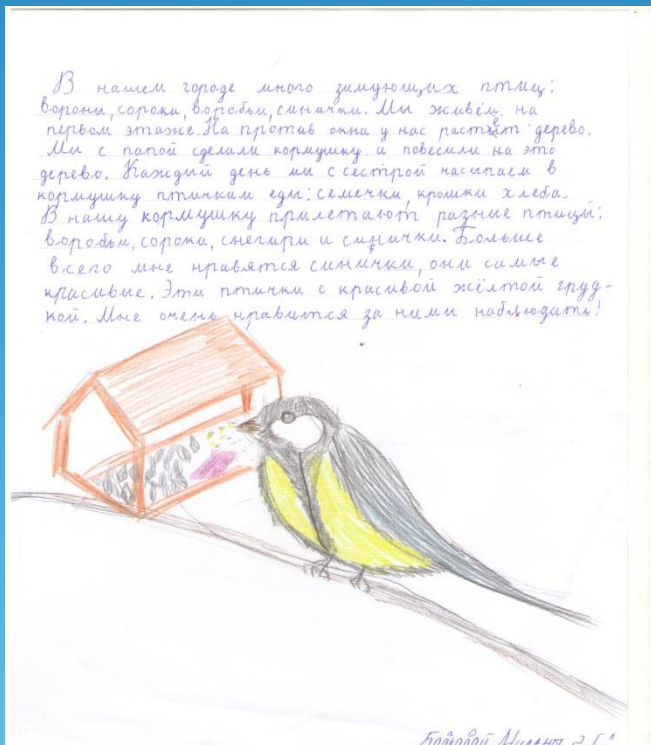 В нашем городе много зимующих птиц:
вороны, сороки, воробьи, синички. Мы живём на
первом этаже. На против окна у нас растёт дерево.
Мы с папой сделали кормушку и повесили на это
дерево. Каждый день мы с сестрой насыпаем в
кормушку птичкам еды: семечки, крошки хлеба.
В нашу кормушку прилетают разные птицы:
воробьи, сороки, снегири и синички. Больше
всего мне нравятся синички, они самые
красивые. Эти птички с красивой жёлтой груд-
кой. Мне очень нравится за ними наблюдать!